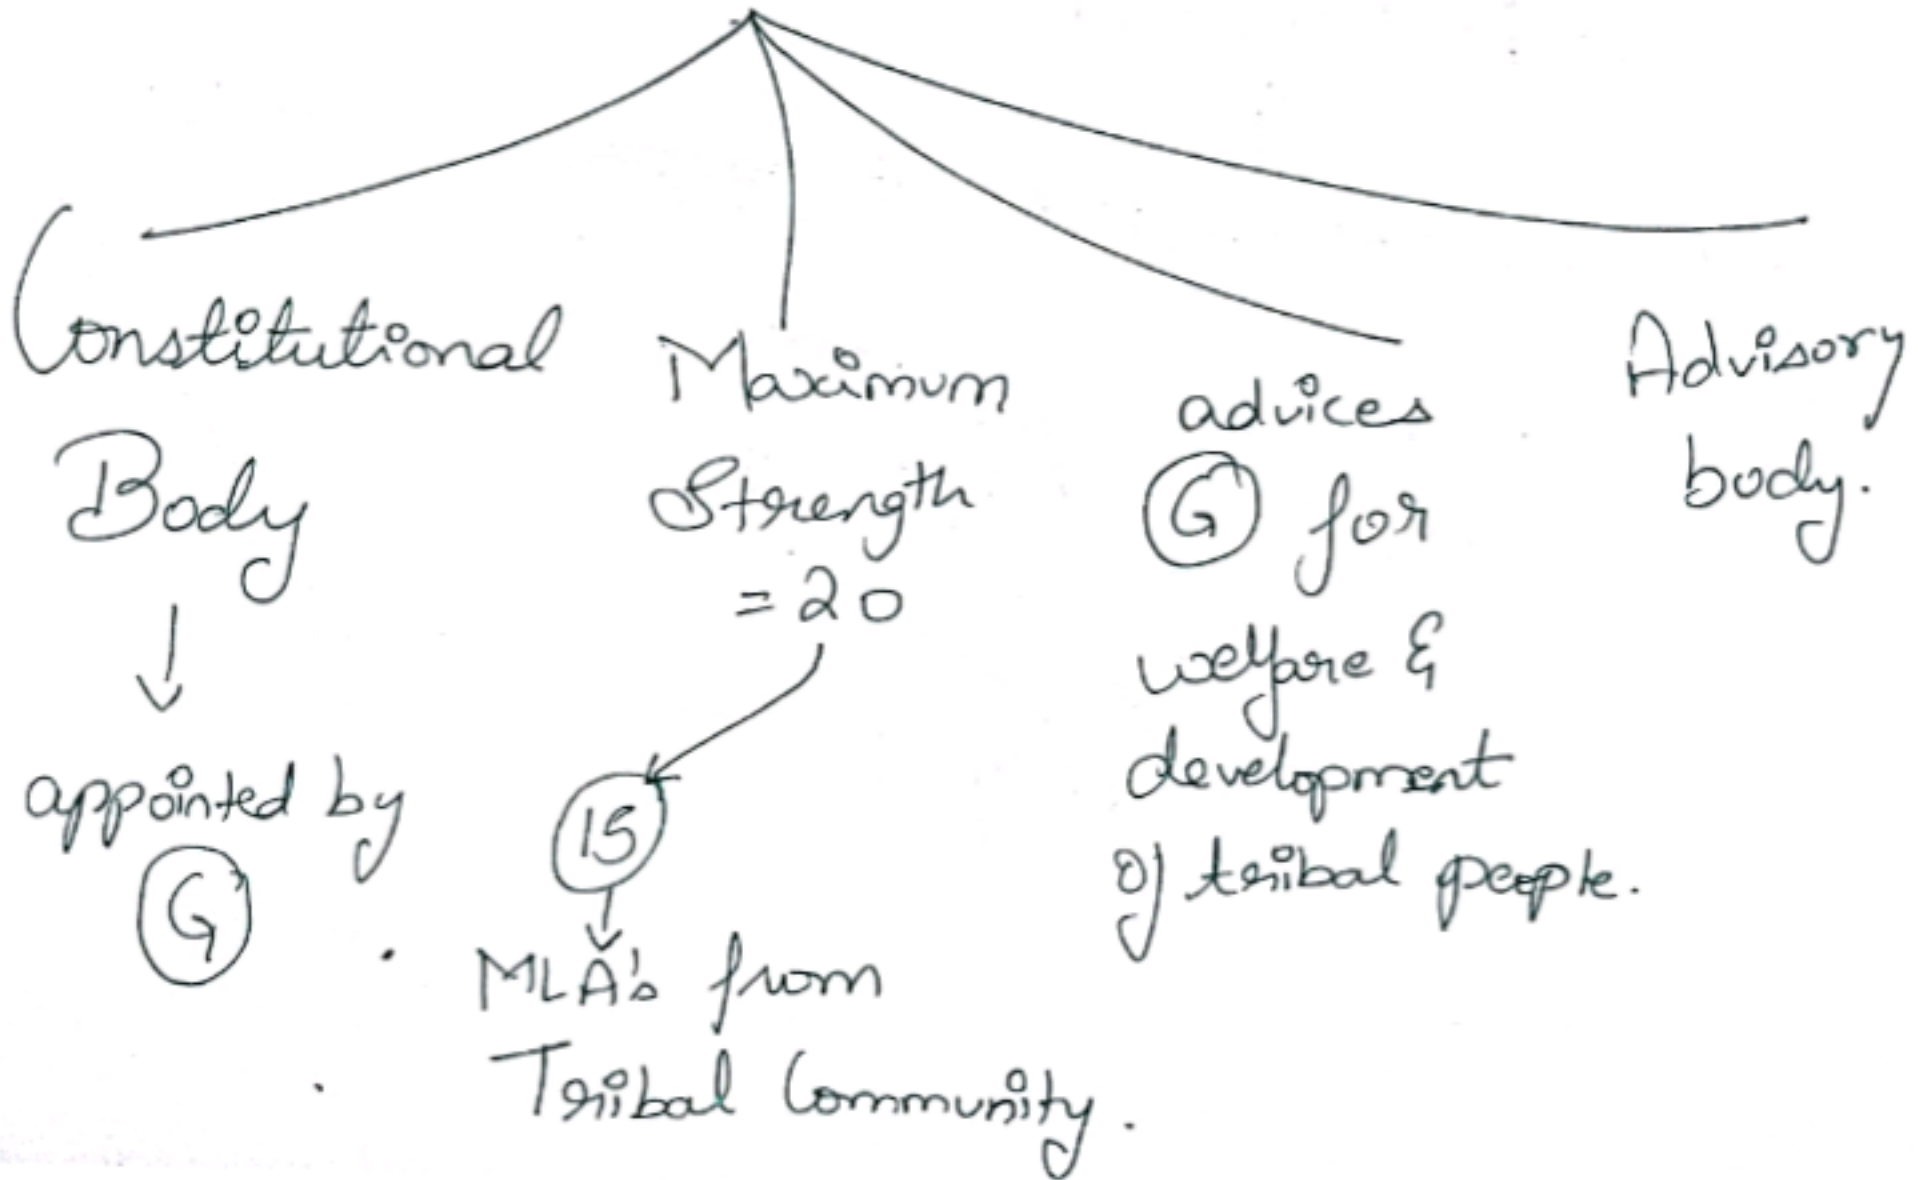 Constitutional
Body
appointed by
G
Maximum
Strength
= 20
15
MLA's from
Tribal Community.
advices
G for
welfare &
development
of tribal people.
Advisory
body.